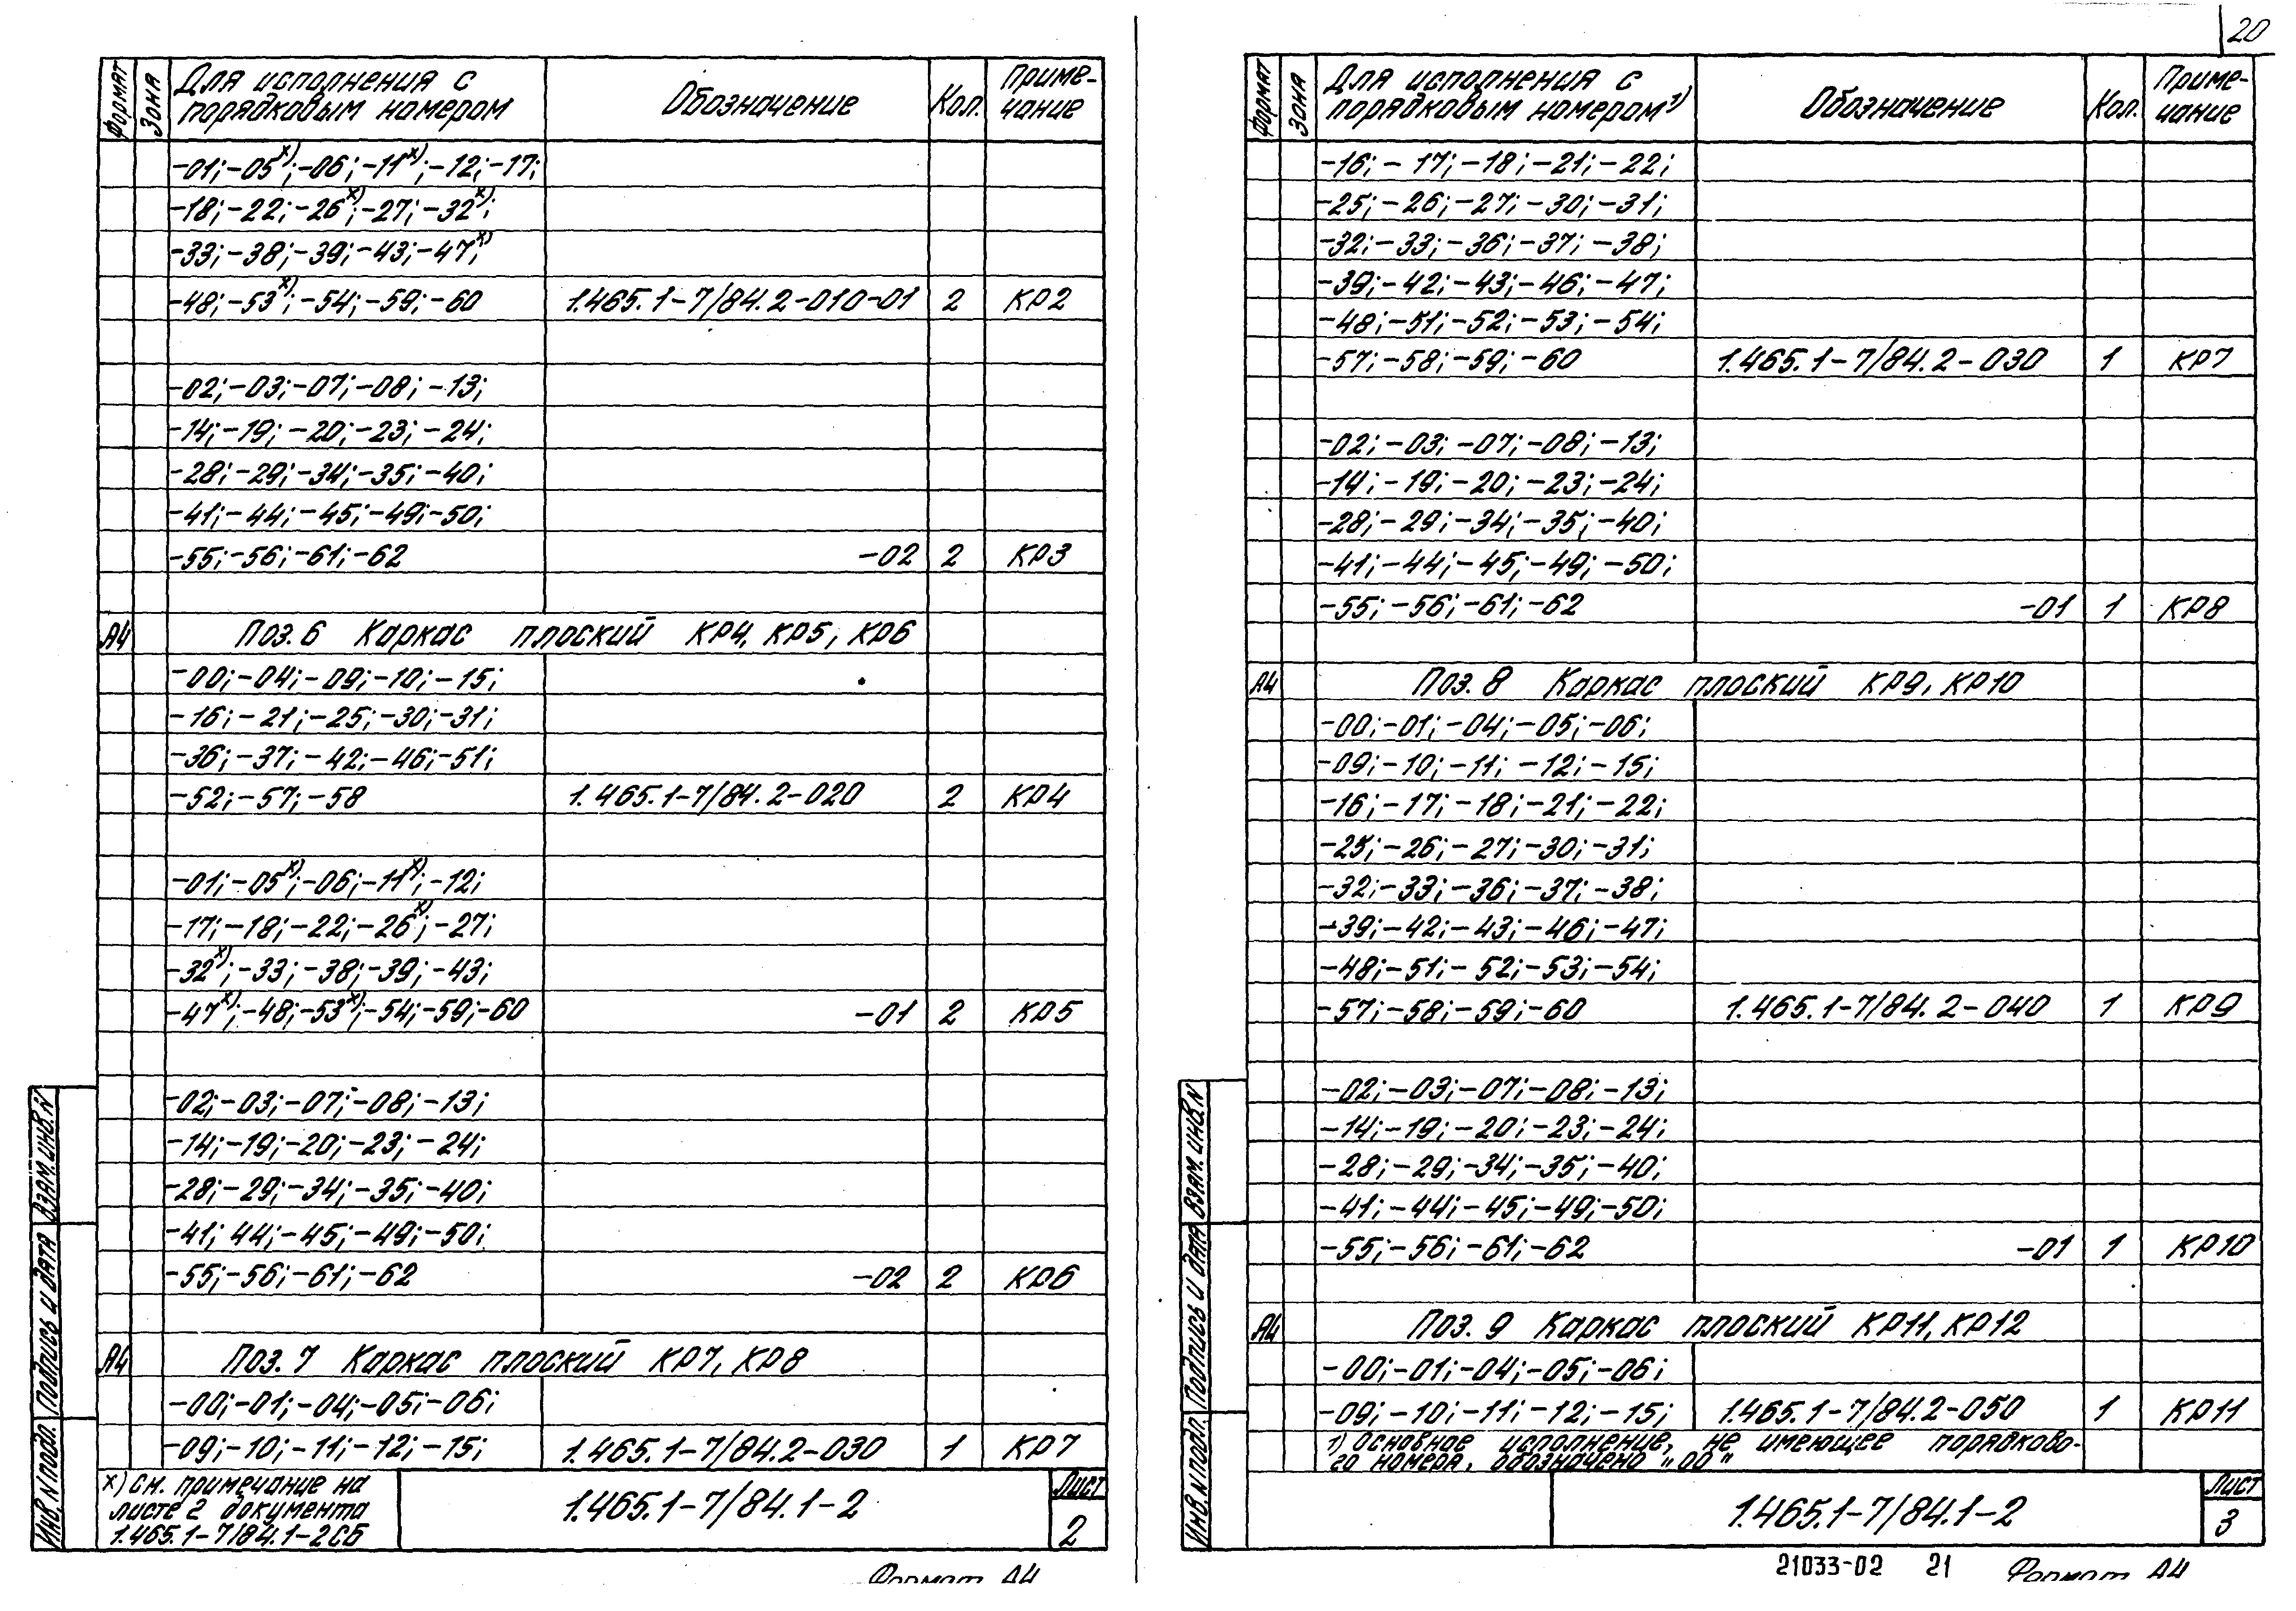 20
Формат Зона Для исполнения с порядковым номером Обозначение Кол. Примечание
-01; -05х); -06; -11х); -12; -17;
-18; -22; -26х); -27; -32х);
-33; -38; -39; -43; -47х);
-48; -53х); -54; -59; -60 1.465.1-7/84.2-010-01 2 КР2
-02; -03; -07; -08; -13;
-14; -19; -20; -23; -24;
-28; -29; -34; -35; -40;
-41; -44; -45; -49; -50;
-55; -56; -61; -62 -02 2 КР3
А4 Поз. 6 Каркас плоский КР4, КР5, КР6
-00; -04; -09; -10; -15;
-16; -21; -25; -30; -31;
-36; -37; -42; -46; -51;
-52; -57; -58 1.465.1-7/84.2-020 2 КР4
-01; -05х); -06; -11х); -12;
-17; -18; -22; -26х); -27;
-32х); -33; -38; -39; -43;
-47х); -48; -53х); -54; -59; -60 -01 2 КР5
-02; -03; -07; -08; -13;
-14; -19; -20; -23; -24;
-28; -29; -34; -35; -40;
-41; 44; -45; -49; -50;
-55; -56; -61; -62 -02 2 КР6
А4 Поз. 7 Каркас плоский КР7, КР8
-00; -01; -04; -05; -06;
-09; -10; -11; -12; -15; 1.465.1-7/84.2-030 1 КР7
х) См. примечание на
листе 2 документа
1.465.1-7/84.1-2СБ
1.465.1-7/84.1-2
Лист
2
Инв. N подл. Подпись и дата Взам. инв. N
Формат А4
Формат Зона Для исполнения с порядковым номером 1) Обозначение Кол. Примечание
-16; -17; -18; -21; -22;
-25; -26; -27; -30; -31;
-32; -33; -36; -37; -38;
-39; -42; -43; -46; -47;
-48; -51; -52; -53; -54;
-57; -58; -59; -60 1.465.1-7/84.2-030 1 КР7
-02; -03; -07; -08; -13;
-14; -19; -20; -23; -24;
-28; -29; -34; -35; -40;
-41; -44; -45; -49; -50;
-55; -56; -61; -62 -01 1 КР8
А4 Поз. 8 Каркас плоский КР9, КР10
-00; -01; -04; -05; -06;
-09; -10; -11; -12; -15;
-16; -17; -18; -21; -22;
-25; -26; -27; -30; -31;
-32; -33; -36; -37; -38;
-39; -42; -43; -46; -47;
-48; -51; -52; -53; -54;
-57; -58; -59; -60 1.465.1-7/84.2-040 1 КР9
-02; -03; -07; -08; -13;
-14; -19; -20; -23; -24;
-28; -29; -34; -35; -40;
-41; -44; -45; -49; -50;
-55; -56; -61; -62 -01 1 КР10
А4 Поз. 9 Каркас плоский КР11, КР12
-00; -01; -04; -05; -06;
-09; -10; -11; -12; -15; 1.465.1-7/84.2-050 1 КР11
1) Основное исполнение, не имеющее порядково-
го номера, обозначено „00"
1.465.1-7/84.1-2
Лист
3
Инв. N подл. Подпись и дата Взам. инв. N
21033-02 21 Формат А4